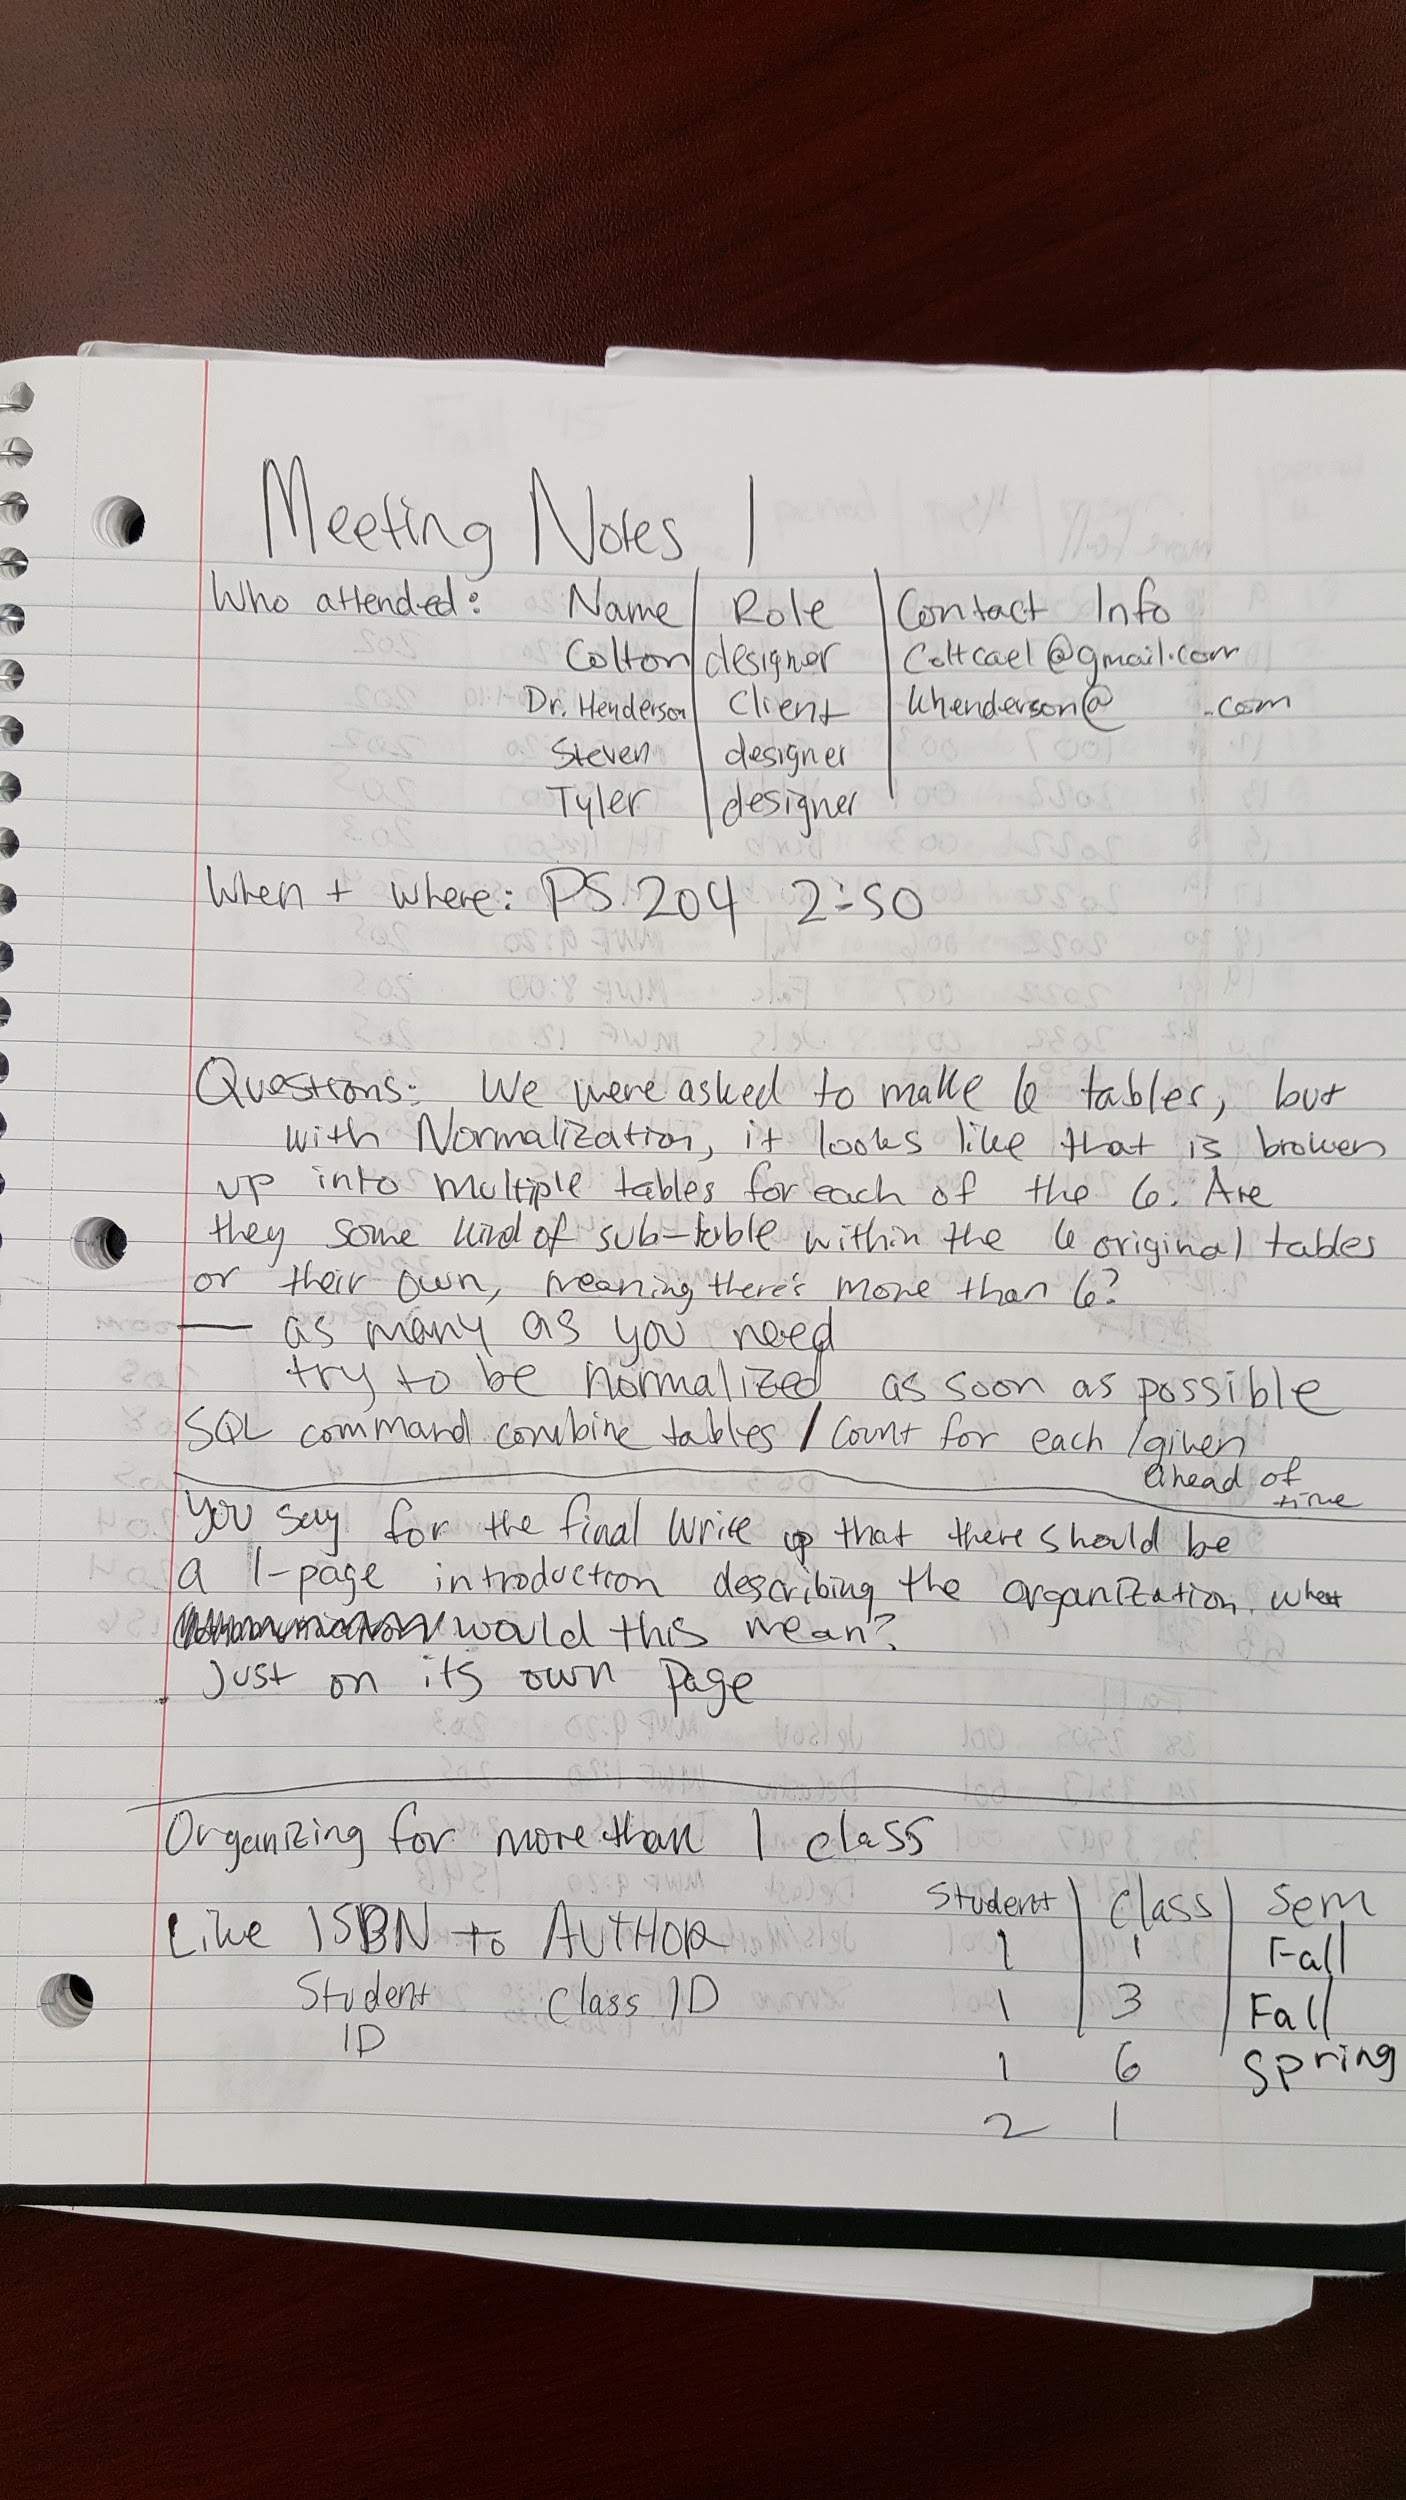 Meeting Notes 1
Who attended: Name | Role | Contact Info
Colton | designer | Coltcael@gmail.com
Dr. Henderson | Client | khenderson@ .com
Steven | designer
Tyler | designer
When + where: PS 204 2:50
Questions: We were asked to make 6 tables, but
with Normalization, it looks like that is broken
up into multiple tables for each of the 6. Are
they some kind of sub-table within the 6 original tables
or their own, meaning there's more than 6?
— as many as you need
try to be normalized as soon as possible
SQL command combine tables / Count for each / given
ahead of
time
You say for the final write up that there should be
a 1-page introduction describing the organization. what
would this mean?
Just on its own page
Organizing for more than 1 class
Like ISBN to AUTHOR
Student ID Class ID
Student | Class | Sem
1 | 1 | Fall
1 | 3 | Fall
1 6 Spring
2 1